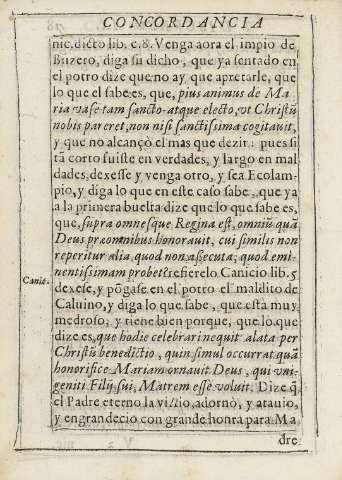 CONCORDANCIA
nic. dicto lib. c. 8. Venga aora el impio de
Buzero, diga su dicho, que ya sentado en
el potro dize que no ay que apretarle, que
lo que el sabe es, que, pius animus de Ma
ria vase tam sancto atque electo, vt Christũ
nobis pareret, non nisi sanctissima cogitauit,
y que no alcançò el mas que dezir: pues si
tã corto fuiste en verdades, y largo en mal
dades, dexesse y venga otro, y sea Ecolam-
pio, y diga lo que en este caso sabe, que ya
a la primera buelta dize que lo que sabe es,
que, supra omnesque Regina est, omniũ quã
Deus præ omnibus honorauit, cui similis non
reperitur alia quod non assecuta; quod emi-
nentissimam probet: refierelo Canicio lib. 5
Canis.
dexese, y põgase en el potro el maldito de
Caluino, y diga lo que sabe, que està muy
medroso; y tiene bien porque, que lo que
dize es, que hodie celebrari nequit alata per
Christũ benedictio, quin simul occurrat quã
honorifice Mariam ornauit Deus, qui vni-
geniti Filij sui, Matrem esse voluit. Dize q̃
el Padre eterno la vistio, adornò, y atauio,
y engrandecio con grande honra para Ma
dre